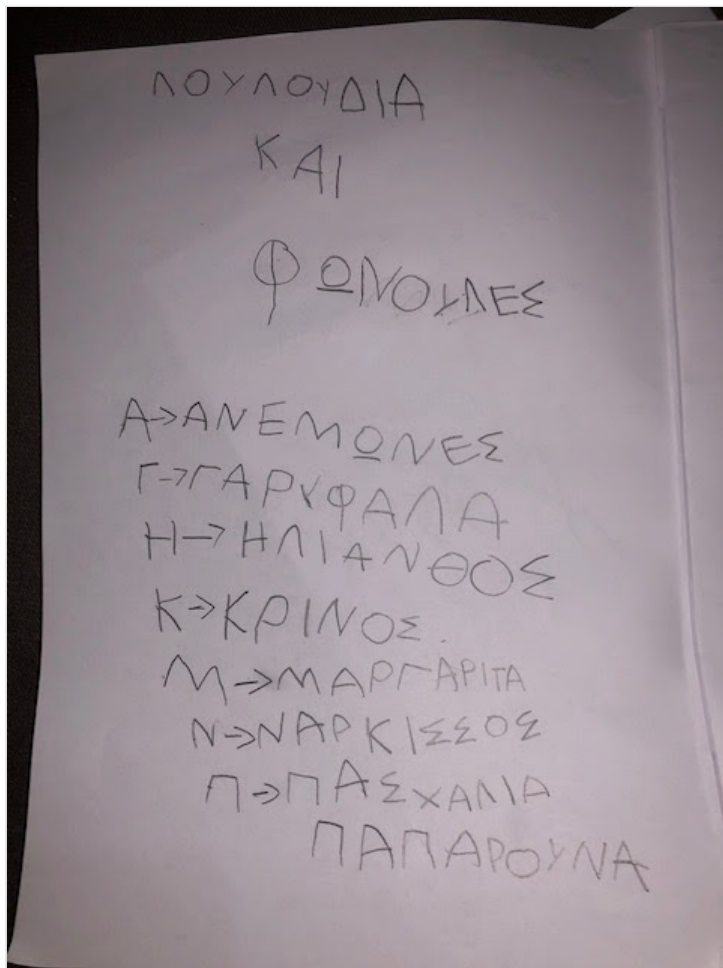 ΛΟΥΛΟΥΔΙΑ
ΚΑΙ
ΦΩΝΟΥΛΕΣ
Α→ΑΝΕΜΩΝΕΣ
Γ→ΓΑΡΥΦΑΛΑ
Η→ΗΛΙΑΝΘΟΣ
Κ→ΚΡΙΝΟΣ.
Μ→ΜΑΡΓΑΡΙΤΑ
Ν→ΝΑΡΚΙΣΣΟΣ
Π→ΠΑΣΧΑΛΙΑ
ΠΑΠΑΡΟΥΝΑ